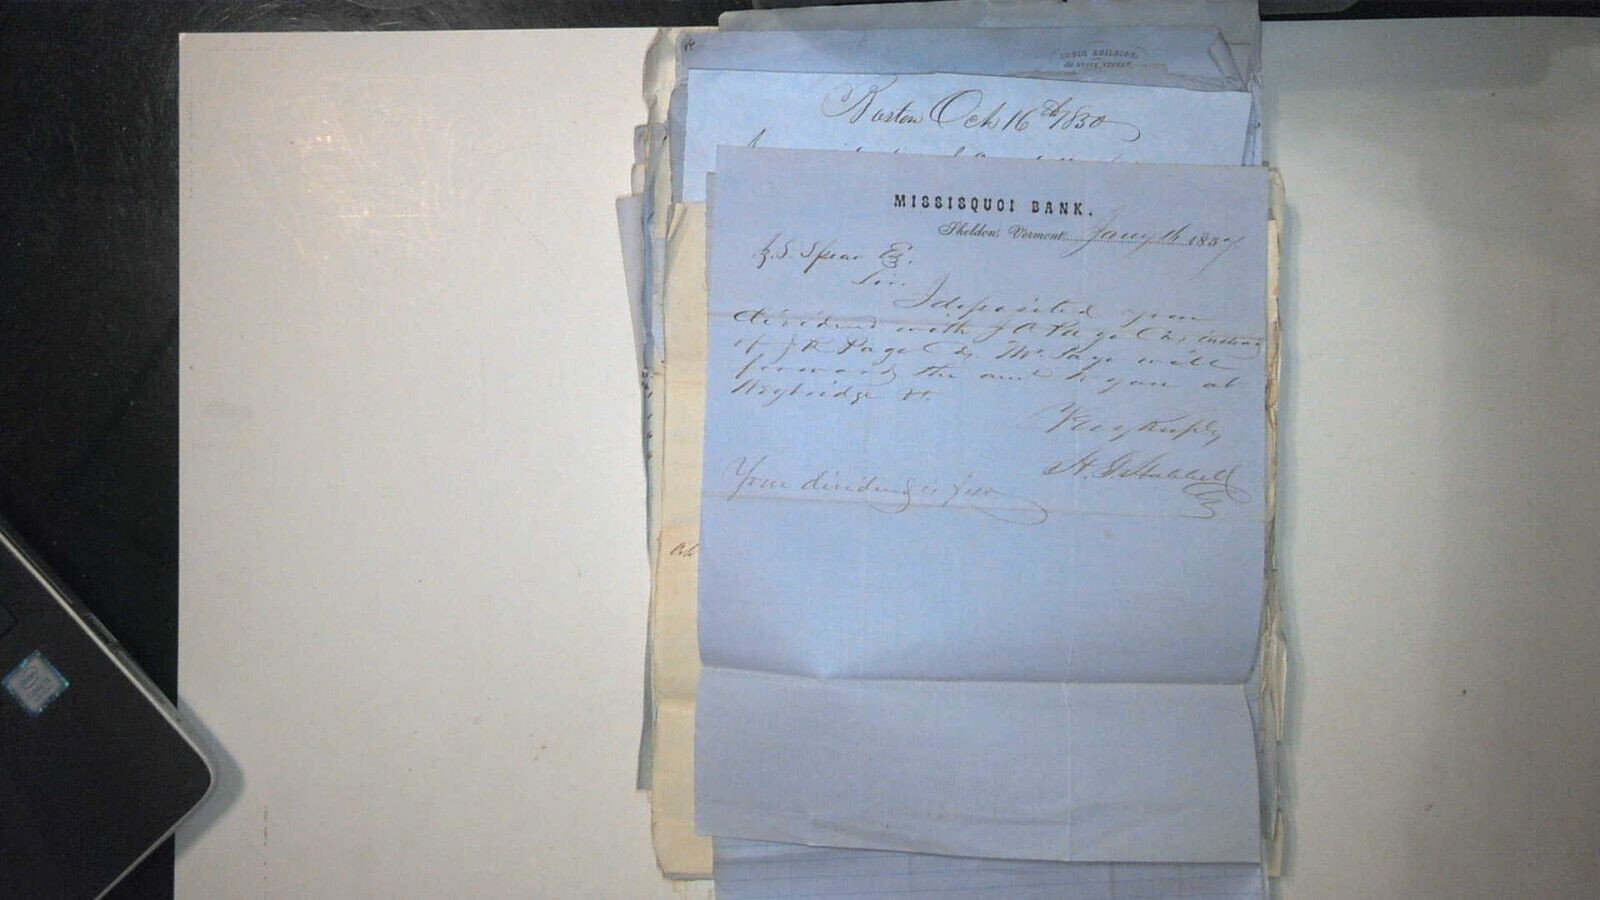 Boston Oct 16th 1850
MISSISQUOI BANK.
Sheldon, Vermont, Jany 16 1857
Spear Esq.
Sir.
I deposited your
dividend with J A Page Ca, instead
of J R Page Ca. Mr. Page will
forward the amt to you at
Weybridge Vt.
Very Respty
H. G. Hubbell
Your dividend is